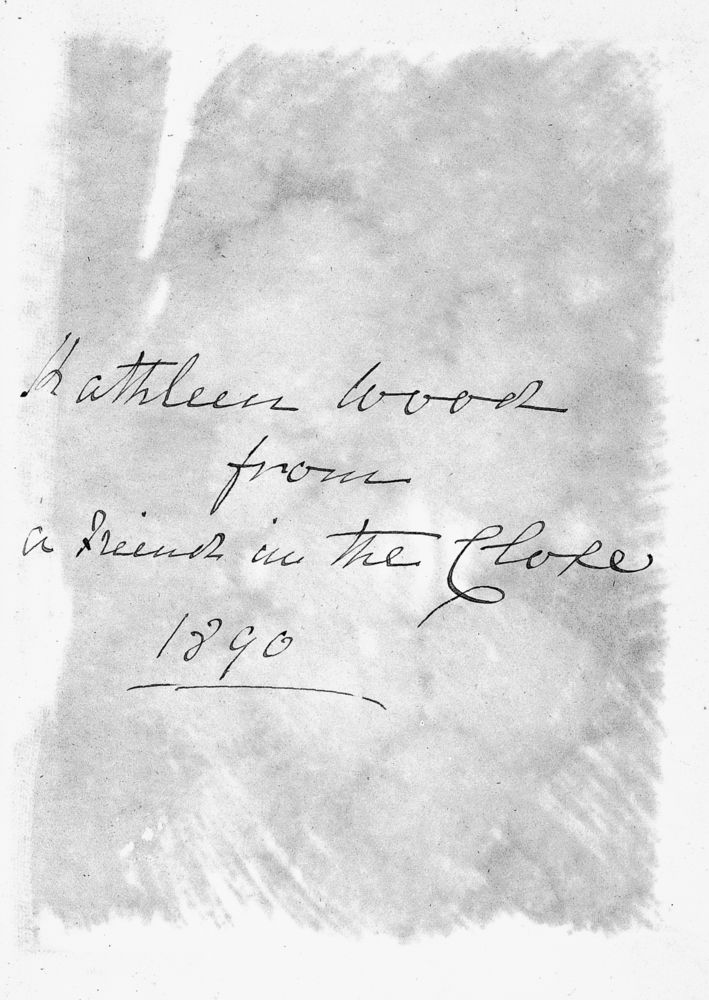 Kathleen Wood
from
a Friend in the Close
1890